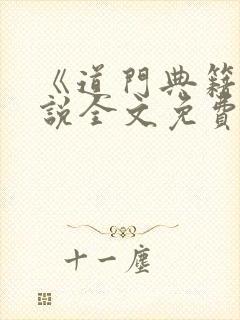 《道門典籍
說全文免費
十一塵